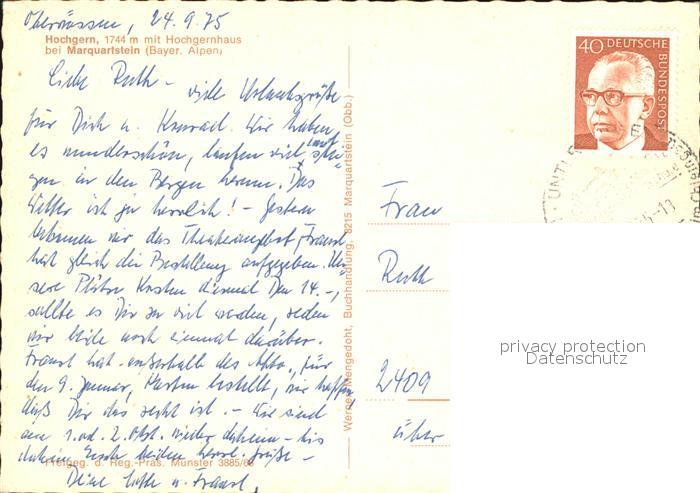 Oberwössen, 24.9.75
Hochgern, 1744 m mit Hochgernhaus
bei Marquartstein (Bayer. Alpen)
Liebe Ruth – viele Urlaubsgrüße
für Dich u. Konrad. Wir haben
es wunderschön, laufen viel
gen in den Bergen herum. Das
Wetter ist zu herrlich! – Gestern
bekamen wir das Theaterangebot,
hat gleich die Bestellung aufgegeben. Un-
sere Plätze kosten diesmal DM 14.–,
sollte es Dir zu viel werden, reden
wir beide noch einmal darüber.
hat außerhalb des Abo., für
den 9. Januar, Karten bestellt, wir hoffen,
daß Dir das recht ist. – Wir sind
am 1. od. 2. Okt. wieder daheim – bis
dahin Euch beiden herzl. Grüße –
Freigeg. d. Reg.-Präs. Münster 3885/68
Deine u.
Werner Mengedoht, Buchhandlung, 8215 Marquartstein (Obb.)
40 DEUTSCHE
BUNDESPOST
Frau
Ruth
2409
über
privacy protection
Datenschutz